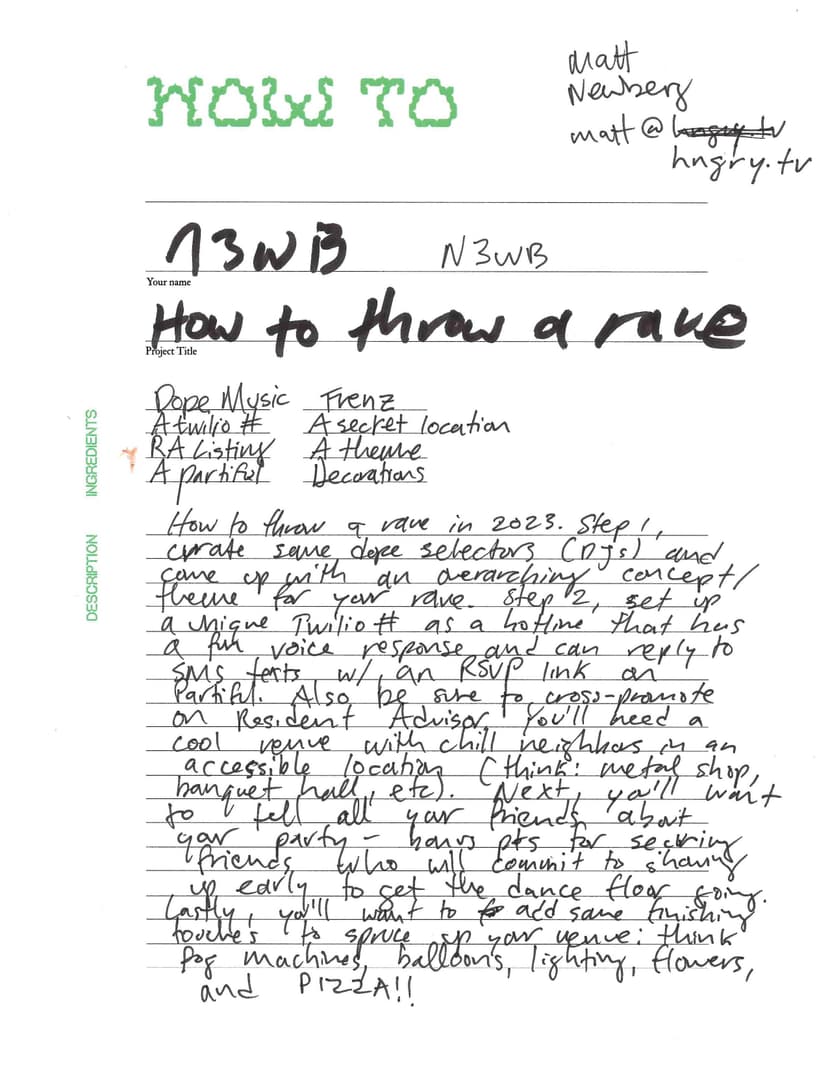 HOW TO
Matt
Newberg
matt@hngry.tv
hngry.tv
N3WB N3WB
Your name
How to throw a rave
Project Title
INGREDIENTS
Dope Music Frenz
A twilio # A secret location
RA Listing A theme
A partiful Decorations
DESCRIPTION
How to throw a rave in 2023. Step 1,
curate some dope selectors (DJs) and
come up with an overarching concept/
theme for your rave. Step 2, set up
a unique Twilio # as a hotline that has
a fun voice response and can reply to
SMS texts w/ an RSVP link on
Partiful. Also be sure to cross-promote
on Resident Advisor. You'll need a
cool venue with chill neighbors in an
accessible location (think: metal shop,
banquet hall, etc). Next, you'll want
to tell all your friends about
your party - bonus pts for securing
friends who will commit to showing
up early to get the dance floor going.
Lastly, you'll want to add some finishing
touches to spruce up your venue: think
fog machines, balloons, lighting, flowers,
and PIZZA!!